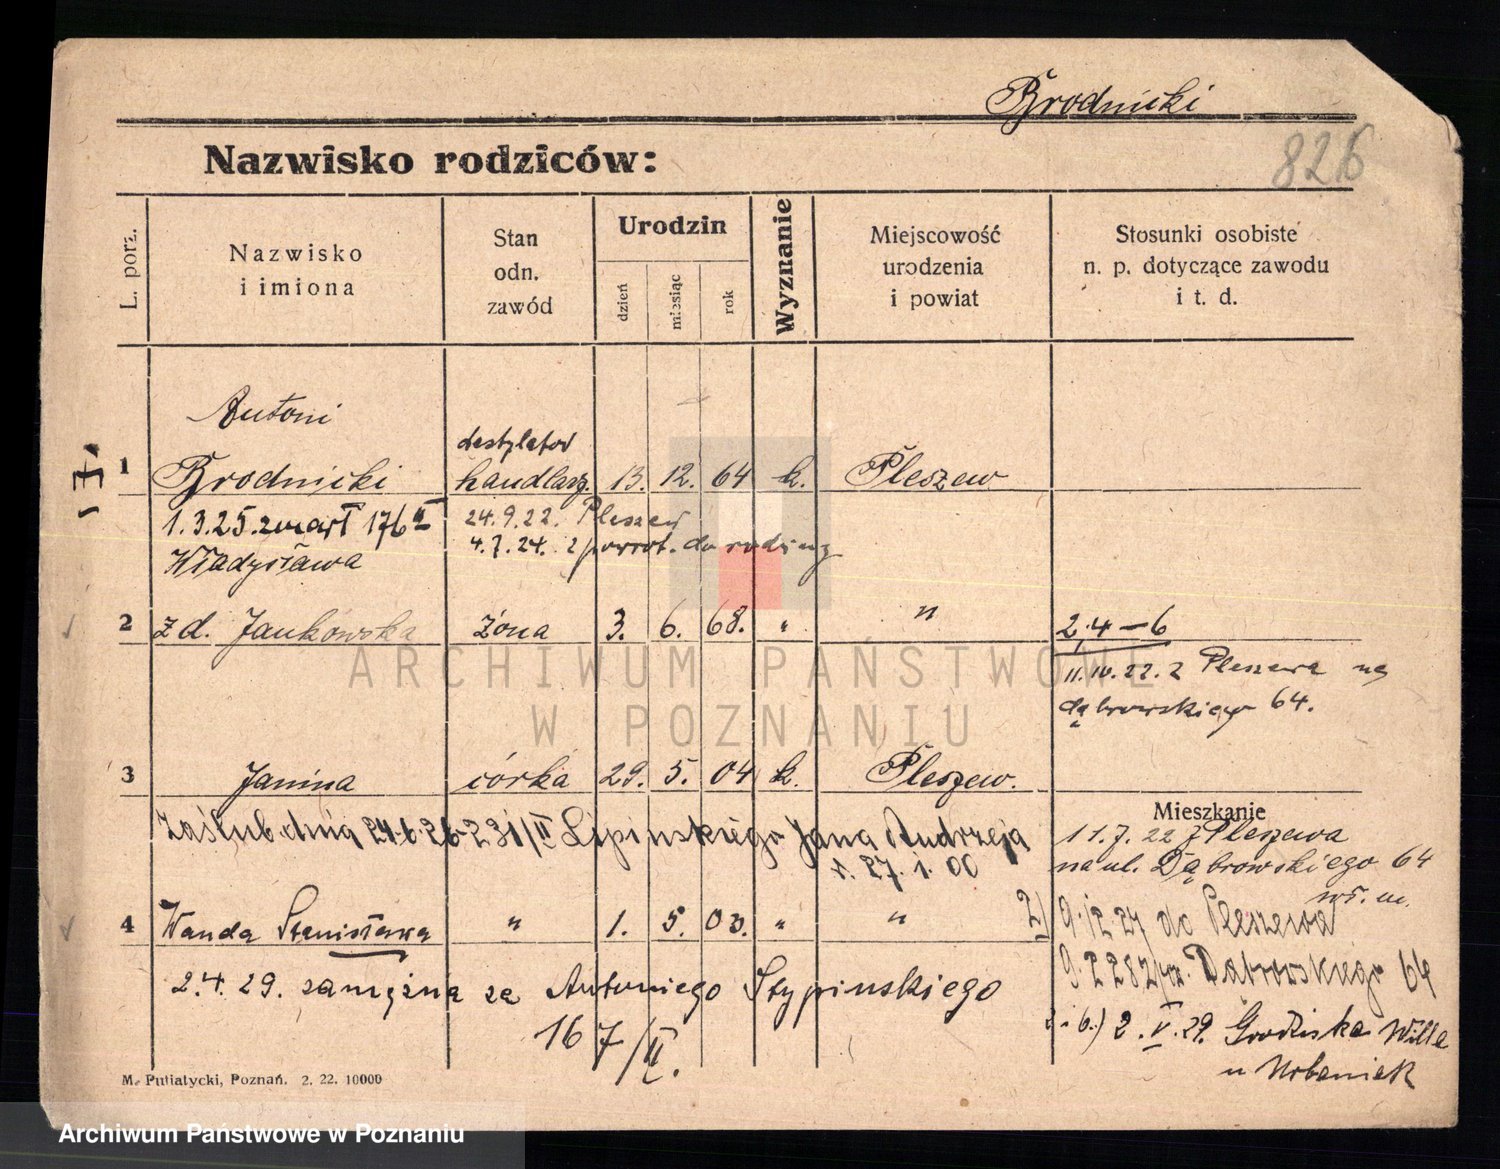 Brodnicki
826
Nazwisko rodziców:
L. porz.
Nazwisko
i imiona
Stan
odn.
zawód
Urodzin
dzień
miesiąc
rok
Wyznanie
Miejscowość
urodzenia
i powiat
Stosunki osobiste
n. p. dotyczące zawodu
i t. d.
Antoni
destylator
1 Brodnicki handlarz. 13. 12. 64 k. Pleszew
1.3.25. zmarł 176 II
24.9.22. Pleszew
4.7.24. z powrot. do rodziny
Władysława
2 z d. Jankowska żona 3. 6. 68. " " 2,4-6
11.10.22. z Pleszewa na
dąbrowskiego 64.
3 Janina córka 29. 5. 04 k. Pleszew.
Zaślub. dnia 24.6.26 231/II Lipinskiego Jana Andrzeja
27. 1. 00
Mieszkanie
11.7.22 z Pleszewa
na ul. Dąbrowskiego 64
wł. m.
4 Wanda Stanisława " 1. 5. 03. " "
2) 9.12 27 do Pleszewa
Dąbrowskiego 64
2.4.29. zamężna za Antoniego Stypinskiego
167/II.
2. V. 29. Grodziska Willa
u Urbaniak
M. Putiatycki, Poznań. 2. 22. 10000
ARCHIWUM PAŃSTWOWE
W POZNANIU
Archiwum Państwowe w Poznaniu